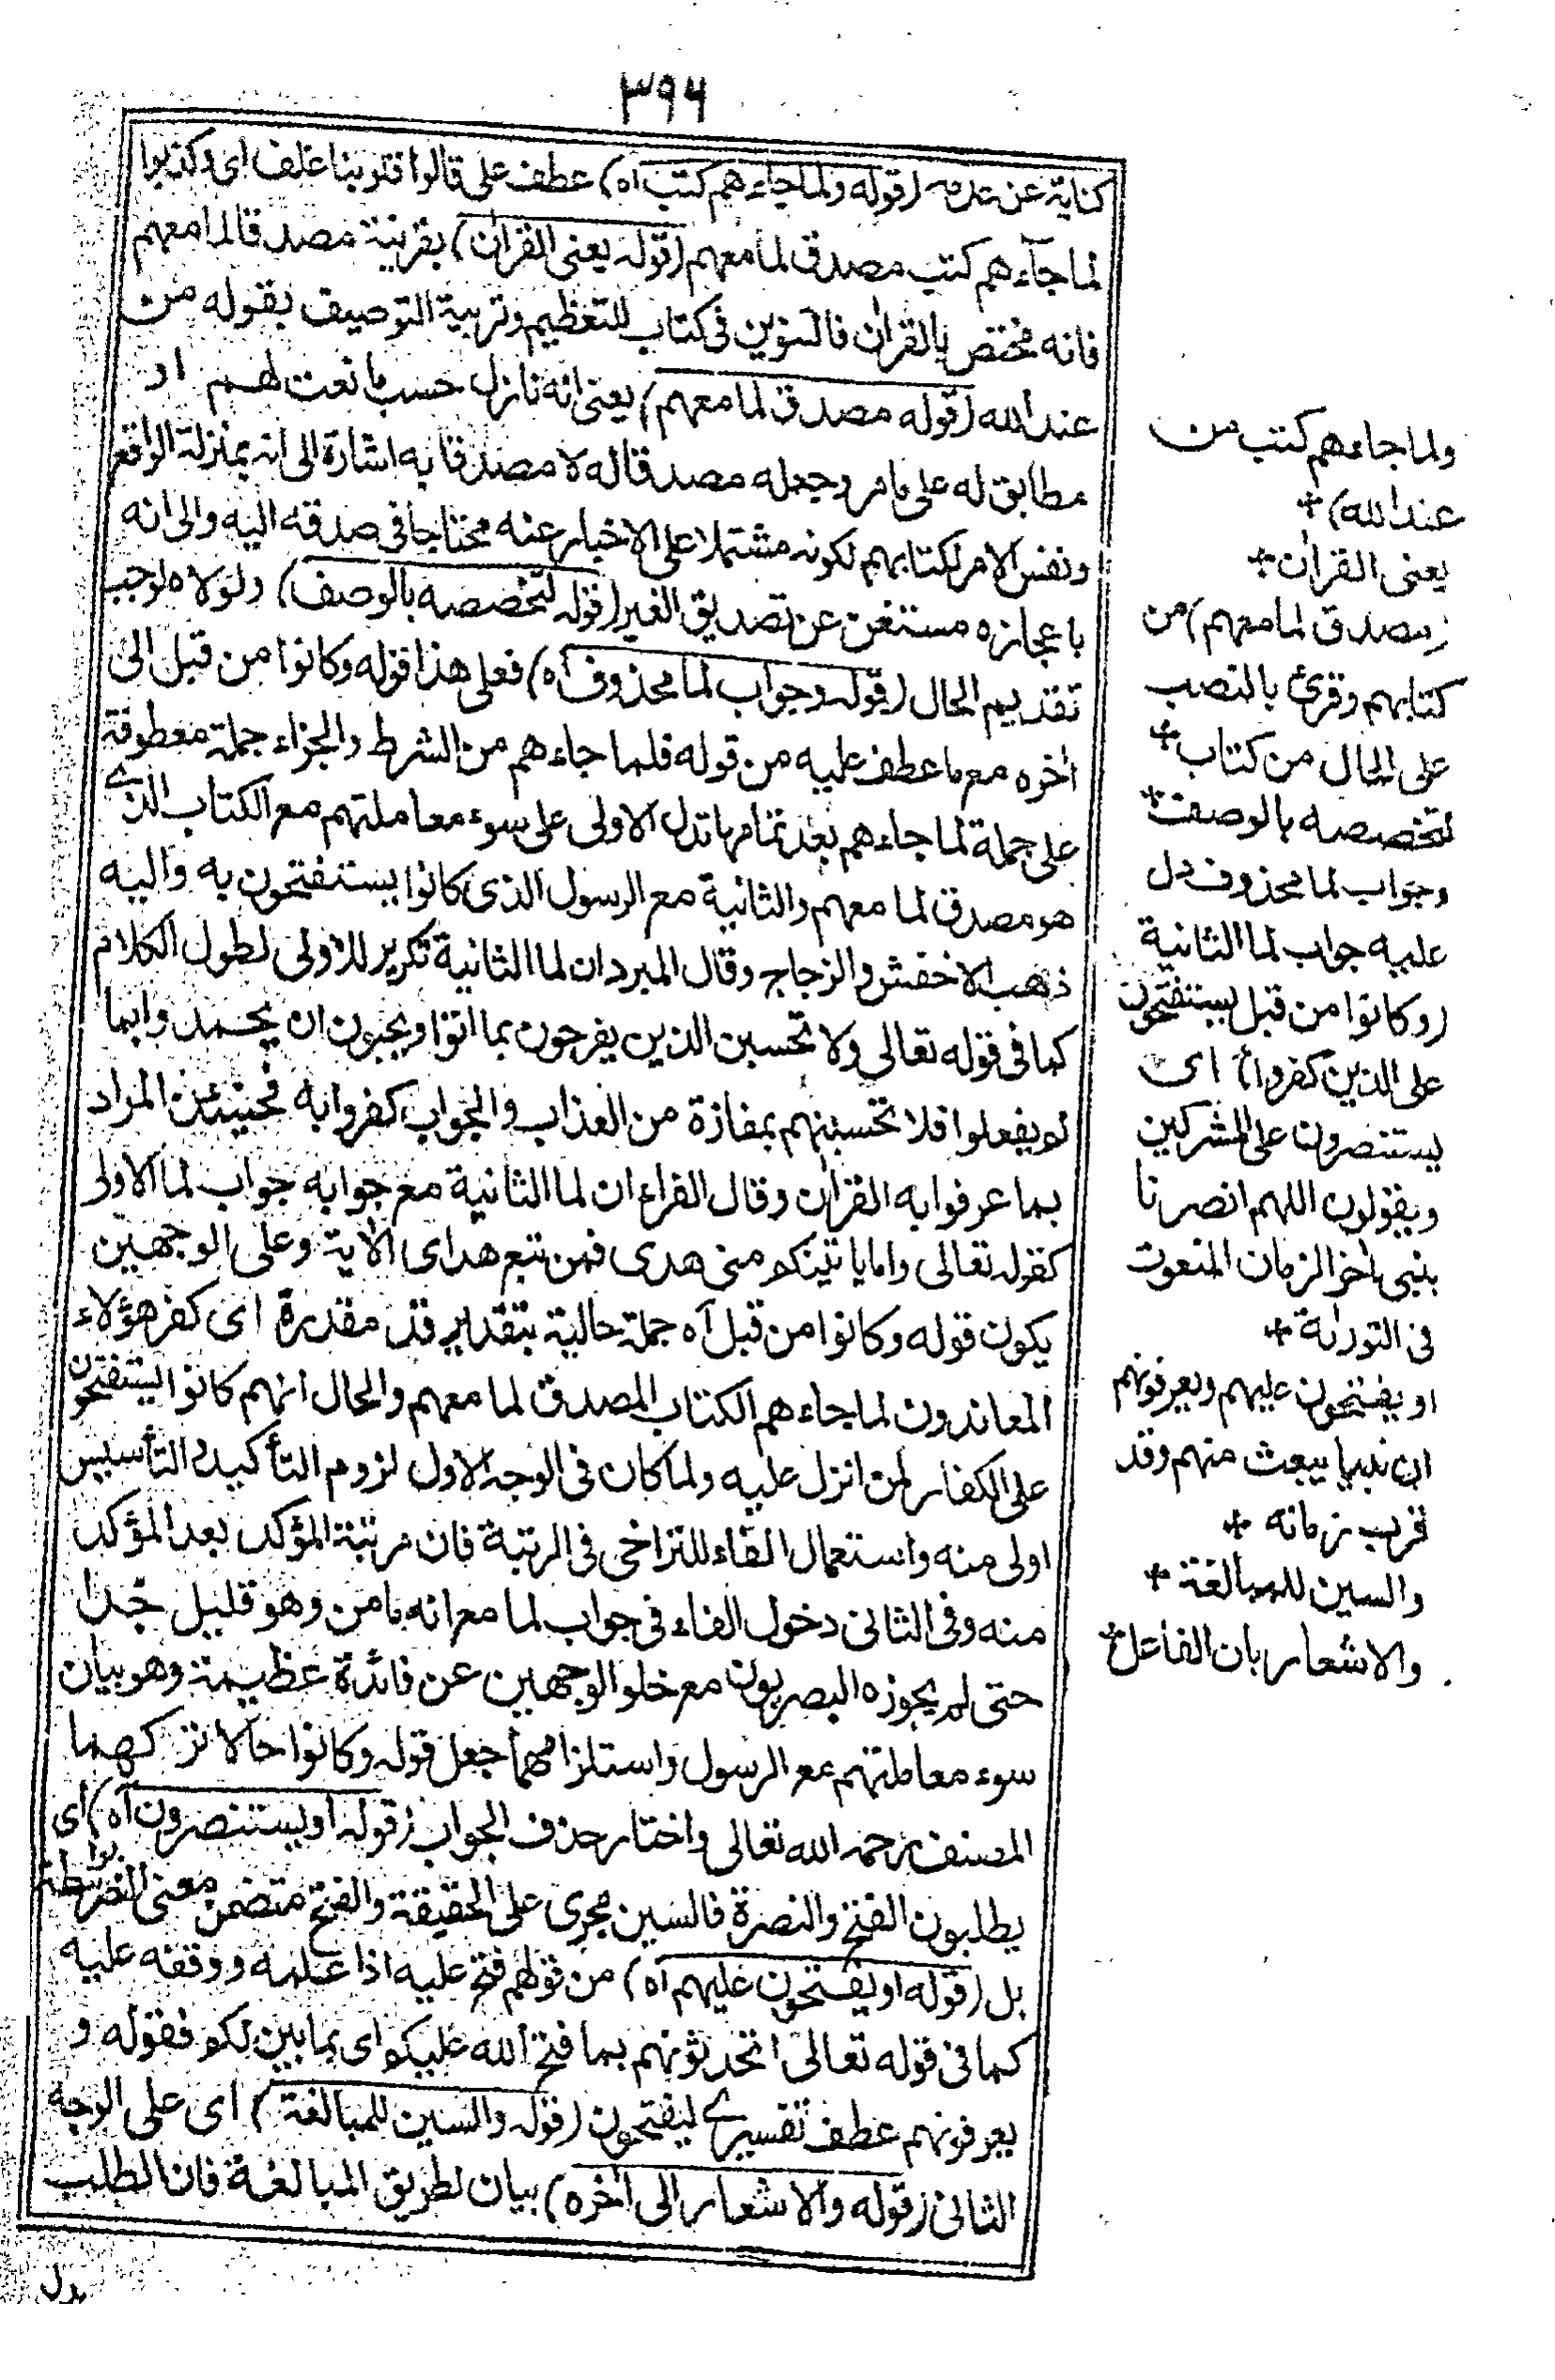 ٣٩٤
كناية عن عدمه (قوله ولما جاءهم كتب آه) عطف على قالوا قلوبنا غلف اى وكذبوا
لما جآءهم كتب مصدق لما معهم (قوله يعنى القرآن) بقرينة مصدقا لما معهم
فانه مختص بالقرآن فالتنوين فى كتاب للتعظيم وقرينة التوصيف بقوله من
عند الله (قوله مصدق لما معهم) يعنى انه نازل حسب ما نعت لهم او
مطابق له على ما مر وجعله مصدقا له لا مصدقا به اشارة الى انه بمنزلة الواقع
ونفس الامر لكتابهم لكونه مشتملا على الاخبار عنه محتاجا فى صدقه اليه والى انه
باعجازه مستغن عن تصديق الغير (قوله لتخصصه بالوصف) ولولاه لوجب
تقديم الحال (قوله وجواب لما محذوف آه) فعلى هذا قوله وكانوا من قبل الى
اخره مع ما عطف عليه من قوله فلما جاءهم من الشرط والجزاء جملة معطوفة
على جملة لما جاءهم بعد تمامها تدل الاولى على سوء معاملتهم مع الكتاب الذى
هو مصدق لما معهم والثانية مع الرسول الذى كانوا يستفتحون به واليه
ذهب الاخفش والزجاج وقال المبرد ان لما الثانية تكرير للاولى لطول الكلام
كما فى قوله تعالى ولا تحسبن الذين يفرحون بما اتوا ويحبون ان يحمدوا بما
لم يفعلوا فلا تحسبنهم بمفازة من العذاب والجواب كفروا به فحينئذ المراد
بما عرفوا به القرآن وقال الفراء ان لما الثانية مع جوابه جواب لما الاولى
كقوله تعالى واما ياتينكم منى هدى فمن تبع هداى الآية وعلى الوجهين
يكون قوله وكانوا من قبل آه جملة حالية بتقدير قد مقدرة اى كفر هؤلاء
المعاندون لما جاءهم الكتاب المصدق لما معهم والحال انهم كانوا يستفتحون
على الكفار لمن انزل عليه ولما كان فى الوجه الاول لزوم التأكيد والتأسيس
اولى منه واستعمال الفاء للتراخى فى الرتبة فان مرتبة المؤكد بعد المؤكد
منه وفى الثانى دخول الفاء فى جواب لما مع انه ماض وهو قليل جدا
حتى لم يجوزه البصريون مع خلو الوجهين عن فائدة عظيمة وهو بيان
سوء معاملتهم مع الرسول واستلزامهما جعل قوله وكانوا حالا تركهما
المصنف رحمه الله تعالى واختار حذف الجواب (قوله او يستنصرون آه) اى
يطلبون الفتح والنصرة فالسين مجرى على الحقيقة والفتح متضمن معنى النصر بواسطة
بل (قوله او يفتحون عليهم آه) من قولهم فتح عليه اذا علمه ووقفه عليه
كما فى قوله تعالى اتحدثونهم بما فتح الله عليكم اى بما بين لكم فقوله و
يعرفونهم عطف تفسيرى ليفتحون (قوله والسين للمبالغة) اى على الوجه
الثانى (قوله والاشعار الى اخره) بيان لطريق المبالغة فان الطلب
يدل
ولما جاءهم كتب من
عند الله) +
يعنى القرآن +
(مصدق لما معهم) من
كتابهم وقرئ بالنصب
على الحال من كتاب +
لتخصصه بالوصف +
وجواب لما محذوف دل
عليه جواب لما الثانية
(وكانوا من قبل يستفتحون
على الذين كفروا) اى
يستنصرون على المشركين
ويقولون اللهم انصرنا
بنبى اخر الزمان المنعوت
فى التورىة +
او يفتحون عليهم ويعرفونهم
ان نبيا يبعث منهم وقد
قرب زمانه +
والسين للمبالغة +
والاشعار بان الفاعل +